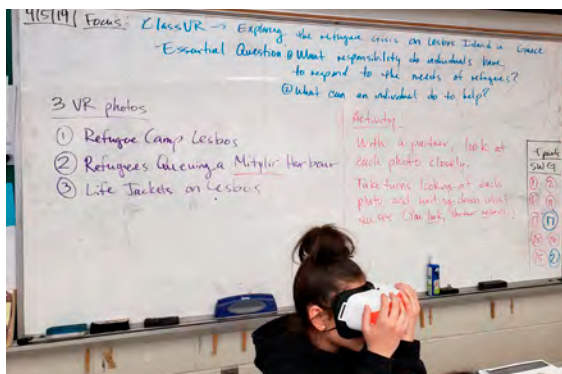 4/5/19 Focus: ClassVR → Exploring the refugee crisis on Lesbos Island in Greece
- Essential Question ① What responsibility do individuals have
to respond to the needs of refugees?
② What can an individual do to help?
3 VR photos
① Refugee Camp Lesbos
② Refugees Queuing a Mitylir Harbour
③ Life Jackets on Lesbos
Activity
With a partner, look at
each photo closely.
Take turns looking at each
photo and writing down what
you see.